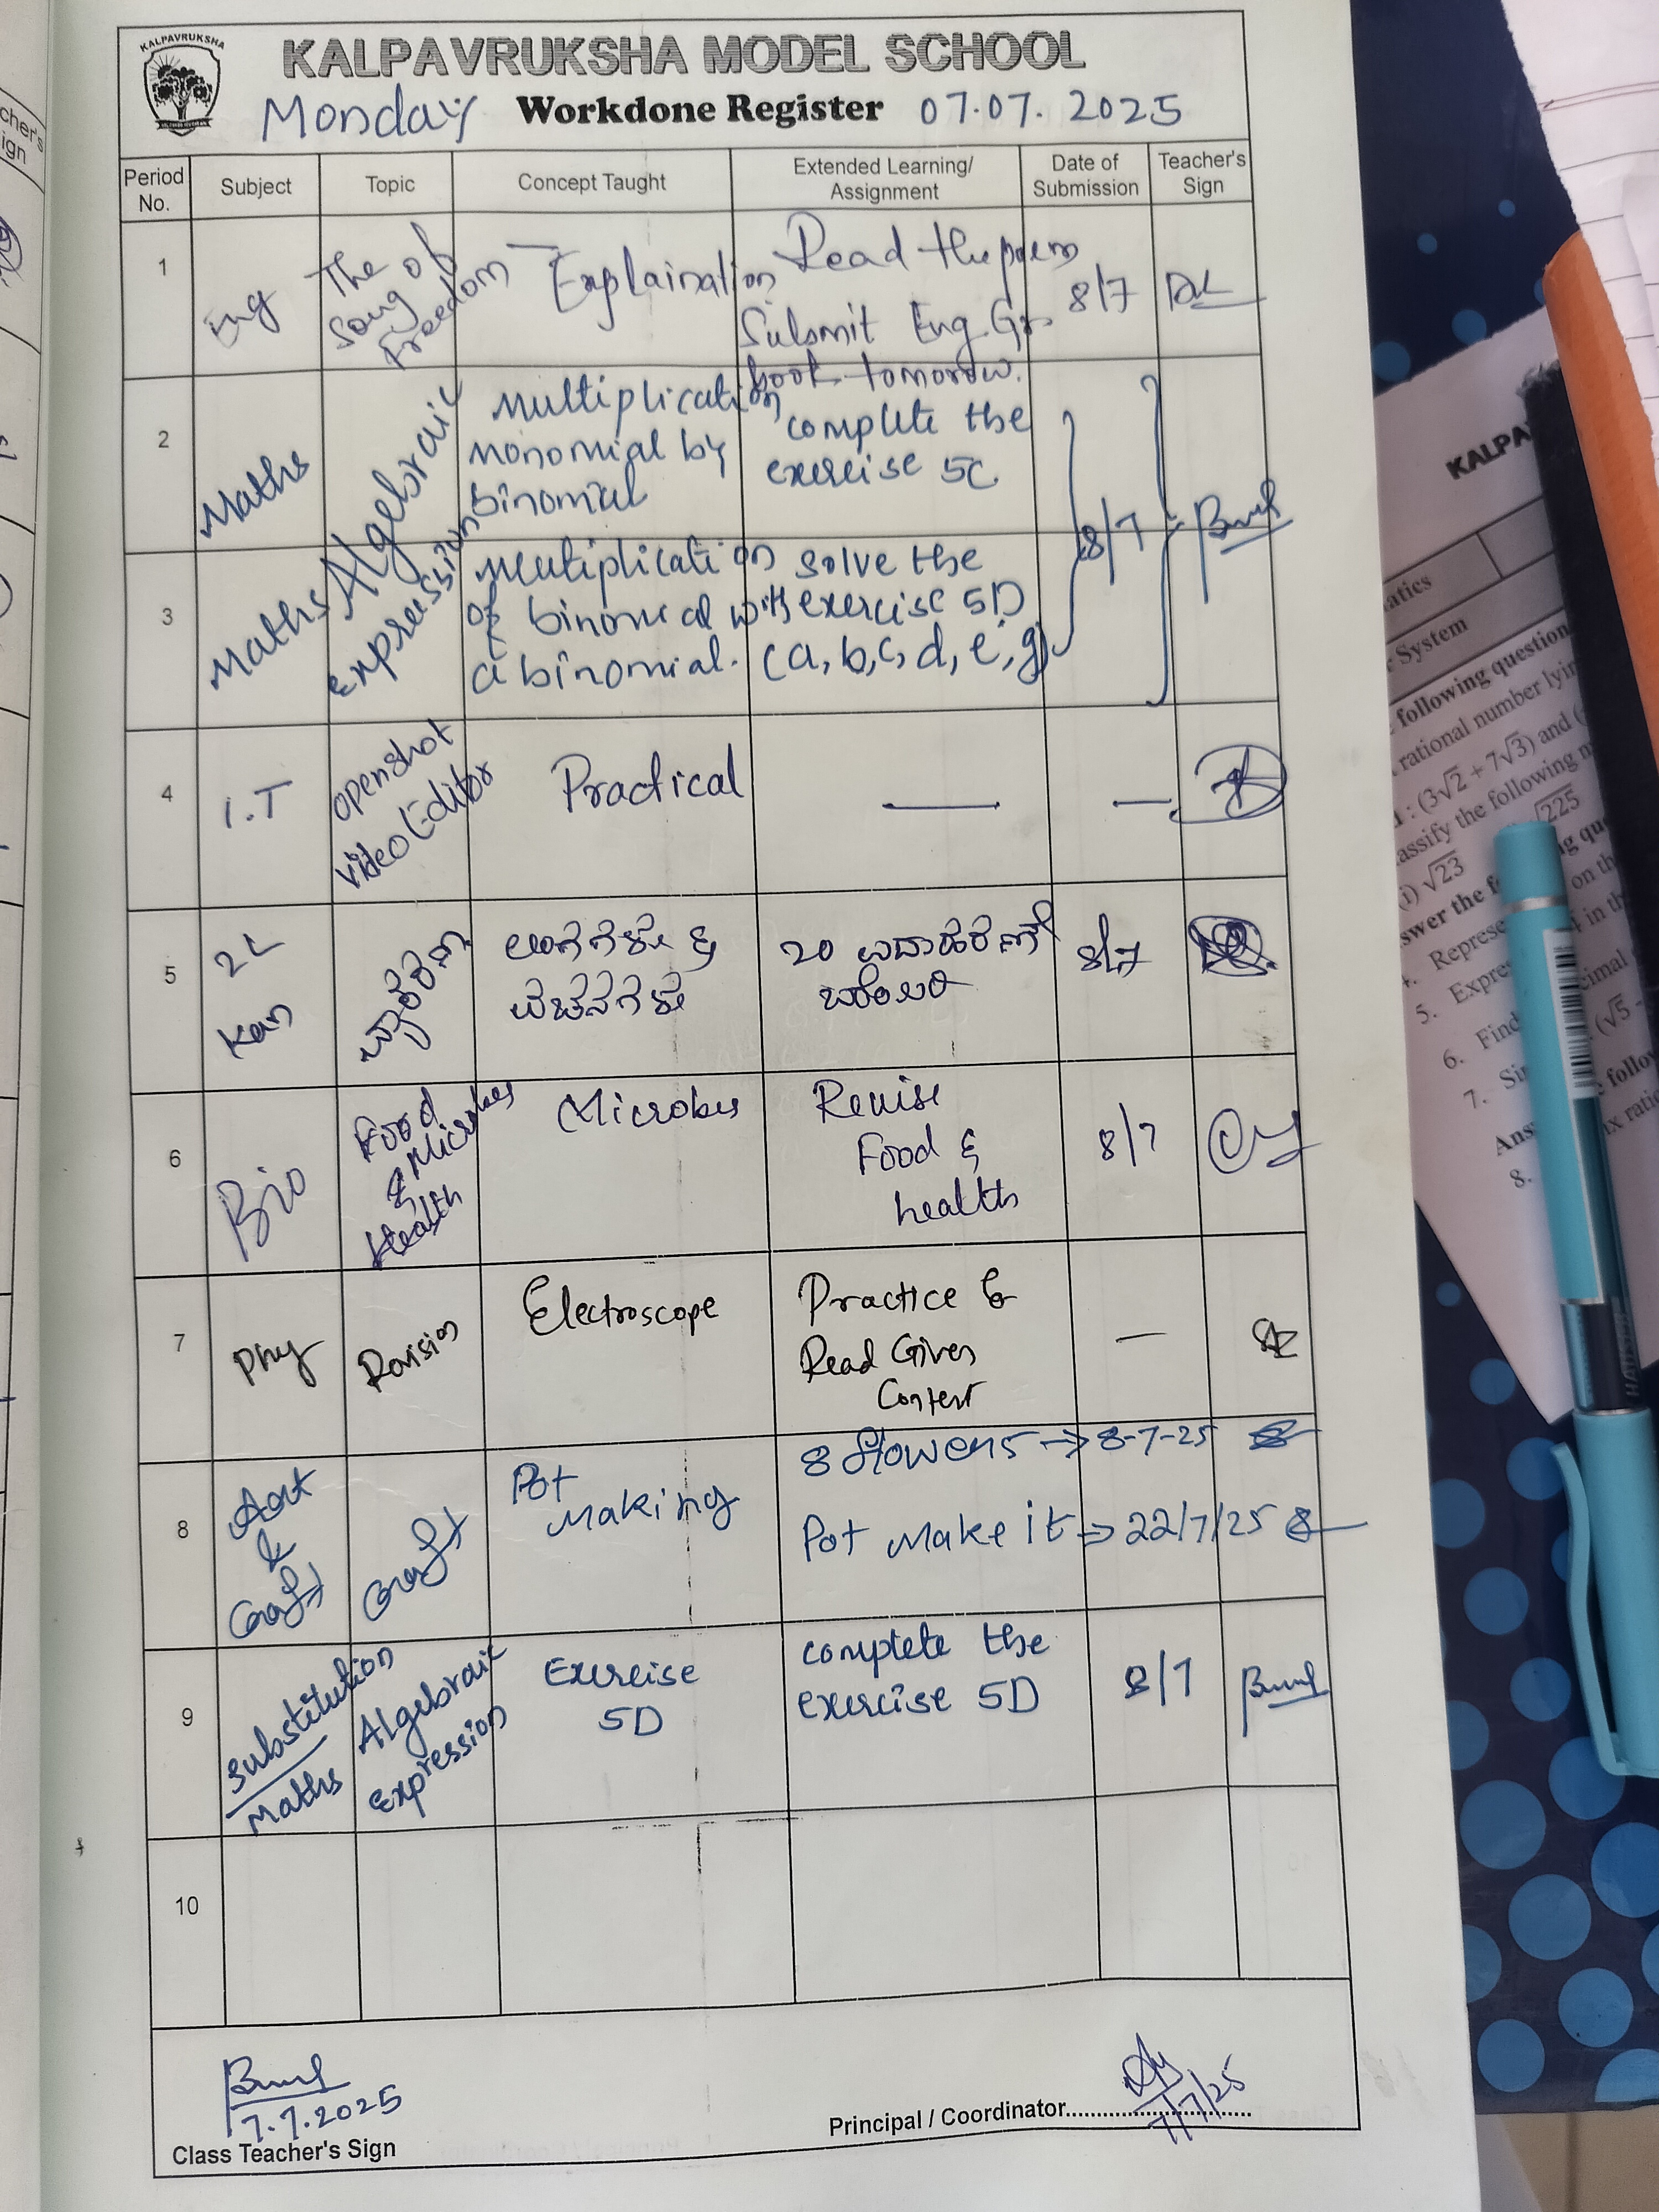 KALPAVRUKSHA
KALPAVRUKSHA MODEL SCHOOL
Monday Workdone Register 07.07.2025
Period No. Subject Topic Concept Taught Extended Learning/ Assignment Date of Submission Teacher's Sign
1 Eng The song of Freedom Explaination Read the poem 8/7
Submit Eng. Gr.
book tomorow.
2 Maths Algebraic expression Multiplication monomial by binomial complete the exercise 5C 8/7
3 Maths Multiplication of binomial with a binomial. solve the exercise 5D (a, b, c, d, e, g)
4 I.T openshot video Editor Practical — —
5 2L Kan ವ್ಯಾಕರಣ ಲಿಂಗಗಳು & ವಚನಗಳು 20 ಉದಾಹರಣೆ ಬರೆಯಿರಿ 8/7
6 Bio Food & Microbes Health Microbes Revise Food & health 8/7
7 Phy Revision Electroscope Practice & Read Given Content —
8 Art & Craft Craft Pot Making 8 flowers → 8-7-25
Pot Make it → 22/7/25
9 Substitution Maths Algebraic Expression Exercise 5D complete the exercise 5D 8/7
10
7.7.2025
Class Teacher's Sign
7/7/25
Principal / Coordinator
cher's
ign
KALPA
atics
System
following question
rational number lyin
: (3√2 + 7√3) and (
assify the following n
√225
(i) √23
swer the f
on th
4. Represe
5. Expres
cimal
6. Find
(√5 -
7. Sin
follow
Ans
8.